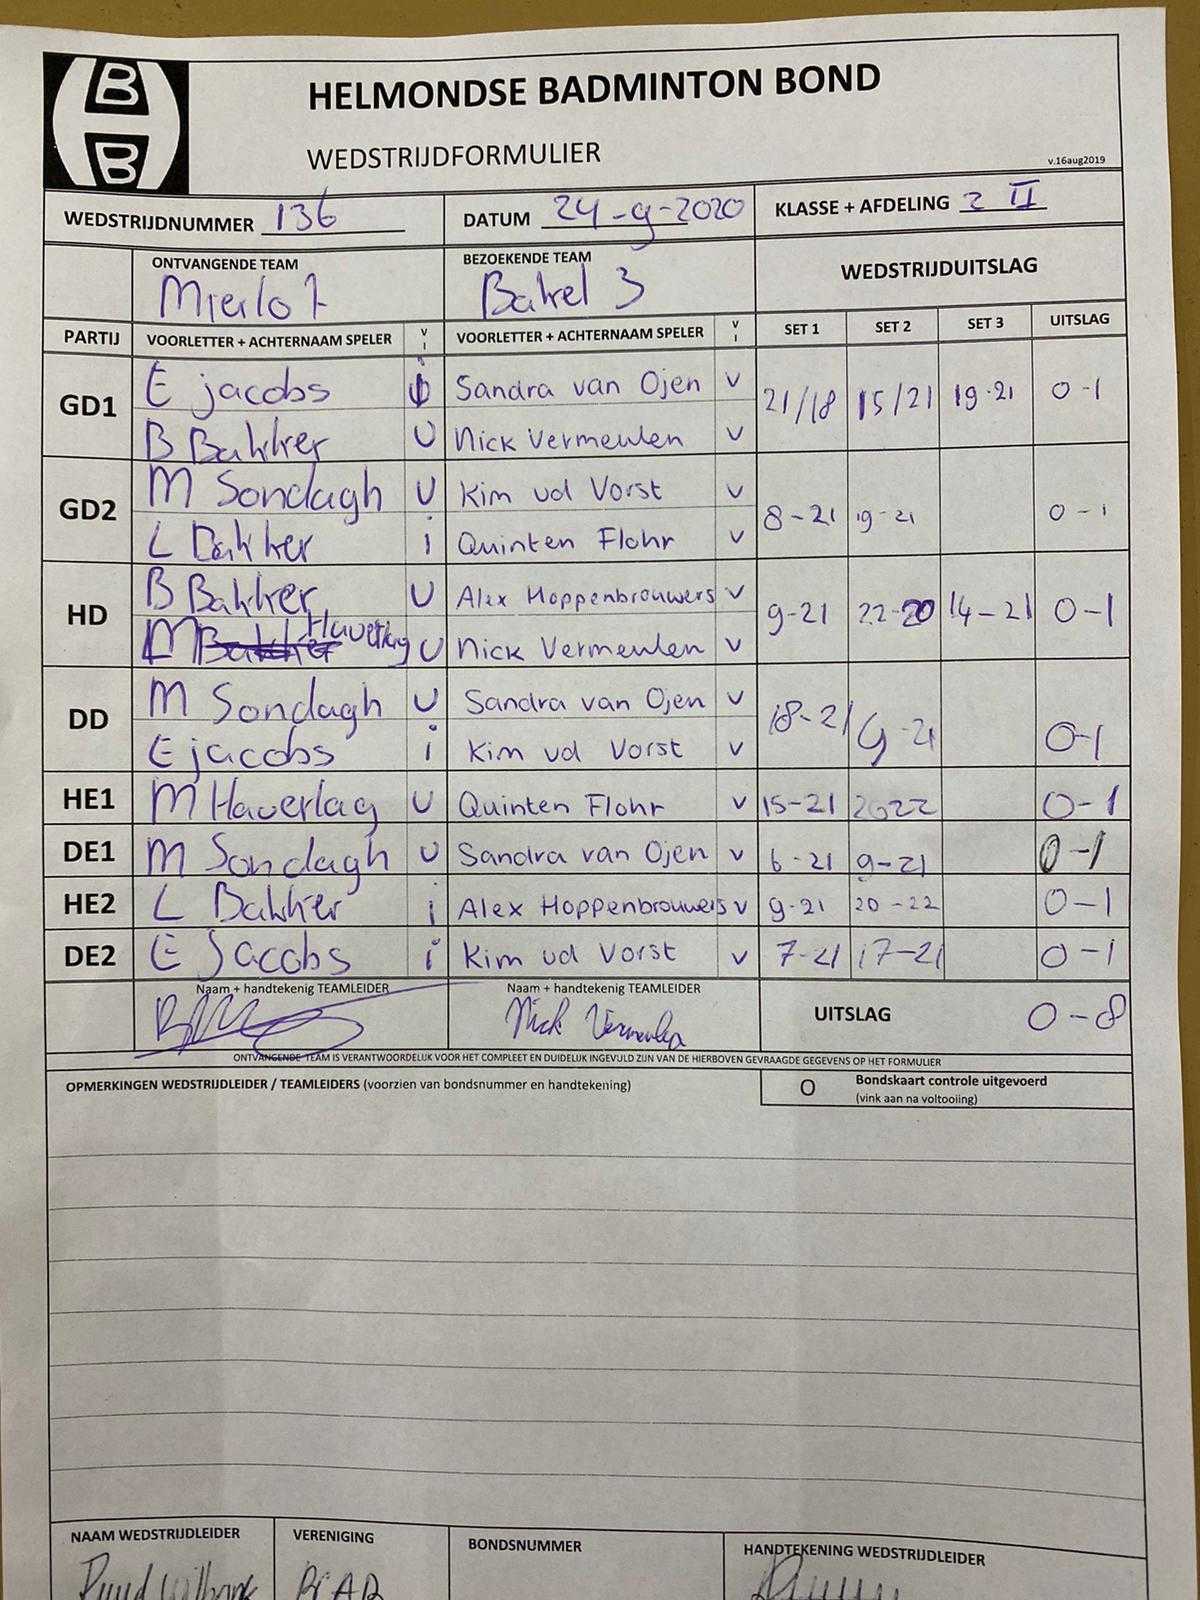 B
B
HELMONDSE BADMINTON BOND
WEDSTRIJDFORMULIER
v.16aug2019
WEDSTRIJDNUMMER 136 DATUM 24-9-2020 KLASSE + AFDELING 2 II
ONTVANGENDE TEAM BEZOEKENDE TEAM WEDSTRIJDUITSLAG
Mierlo 7 Bakel 3
PARTIJ VOORLETTER + ACHTERNAAM SPELER V I VOORLETTER + ACHTERNAAM SPELER V I SET 1 SET 2 SET 3 UITSLAG
GD1 E jacobs Sandra van Ojen v 21/18 15/21 19-21 0-1
B Bakker U Nick Vermeulen v
GD2 M Sondagh U Kim vd Vorst v 8-21 19-21 0-1
L Bakker i Quinten Flohr v
HD B Bakker U Alex Hoppenbrouwers v 9-21 22-20 14-21 0-1
M Haverlag U Nick Vermeulen v
DD M Sondagh U Sandra van Ojen v 18-21 9-21 0-1
E jacobs i Kim vd Vorst v
HE1 M Haverlag U Quinten Flohr v 15-21 2022 0-1
DE1 M Sondagh U Sandra van Ojen v 6-21 9-21 0-1
HE2 L Bakker i Alex Hoppenbrouwers v 9-21 20-22 0-1
DE2 E Jacobs i Kim vd Vorst v 7-21 17-21 0-1
Naam + handtekenig TEAMLEIDER Naam + handtekenig TEAMLEIDER UITSLAG 0-8
Nick Vermeulen
ONTVANGENDE TEAM IS VERANTWOORDELIJK VOOR HET COMPLEET EN DUIDELIJK INGEVULD ZIJN VAN DE HIERBOVEN GEVRAAGDE GEGEVENS OP HET FORMULIER
OPMERKINGEN WEDSTRIJDLEIDER / TEAMLEIDERS (voorzien van bondsnummer en handtekening)
O Bondskaart controle uitgevoerd
(vink aan na voltooiing)
NAAM WEDSTRIJDLEIDER VERENIGING BONDSNUMMER HANDTEKENING WEDSTRIJDLEIDER
Ruud